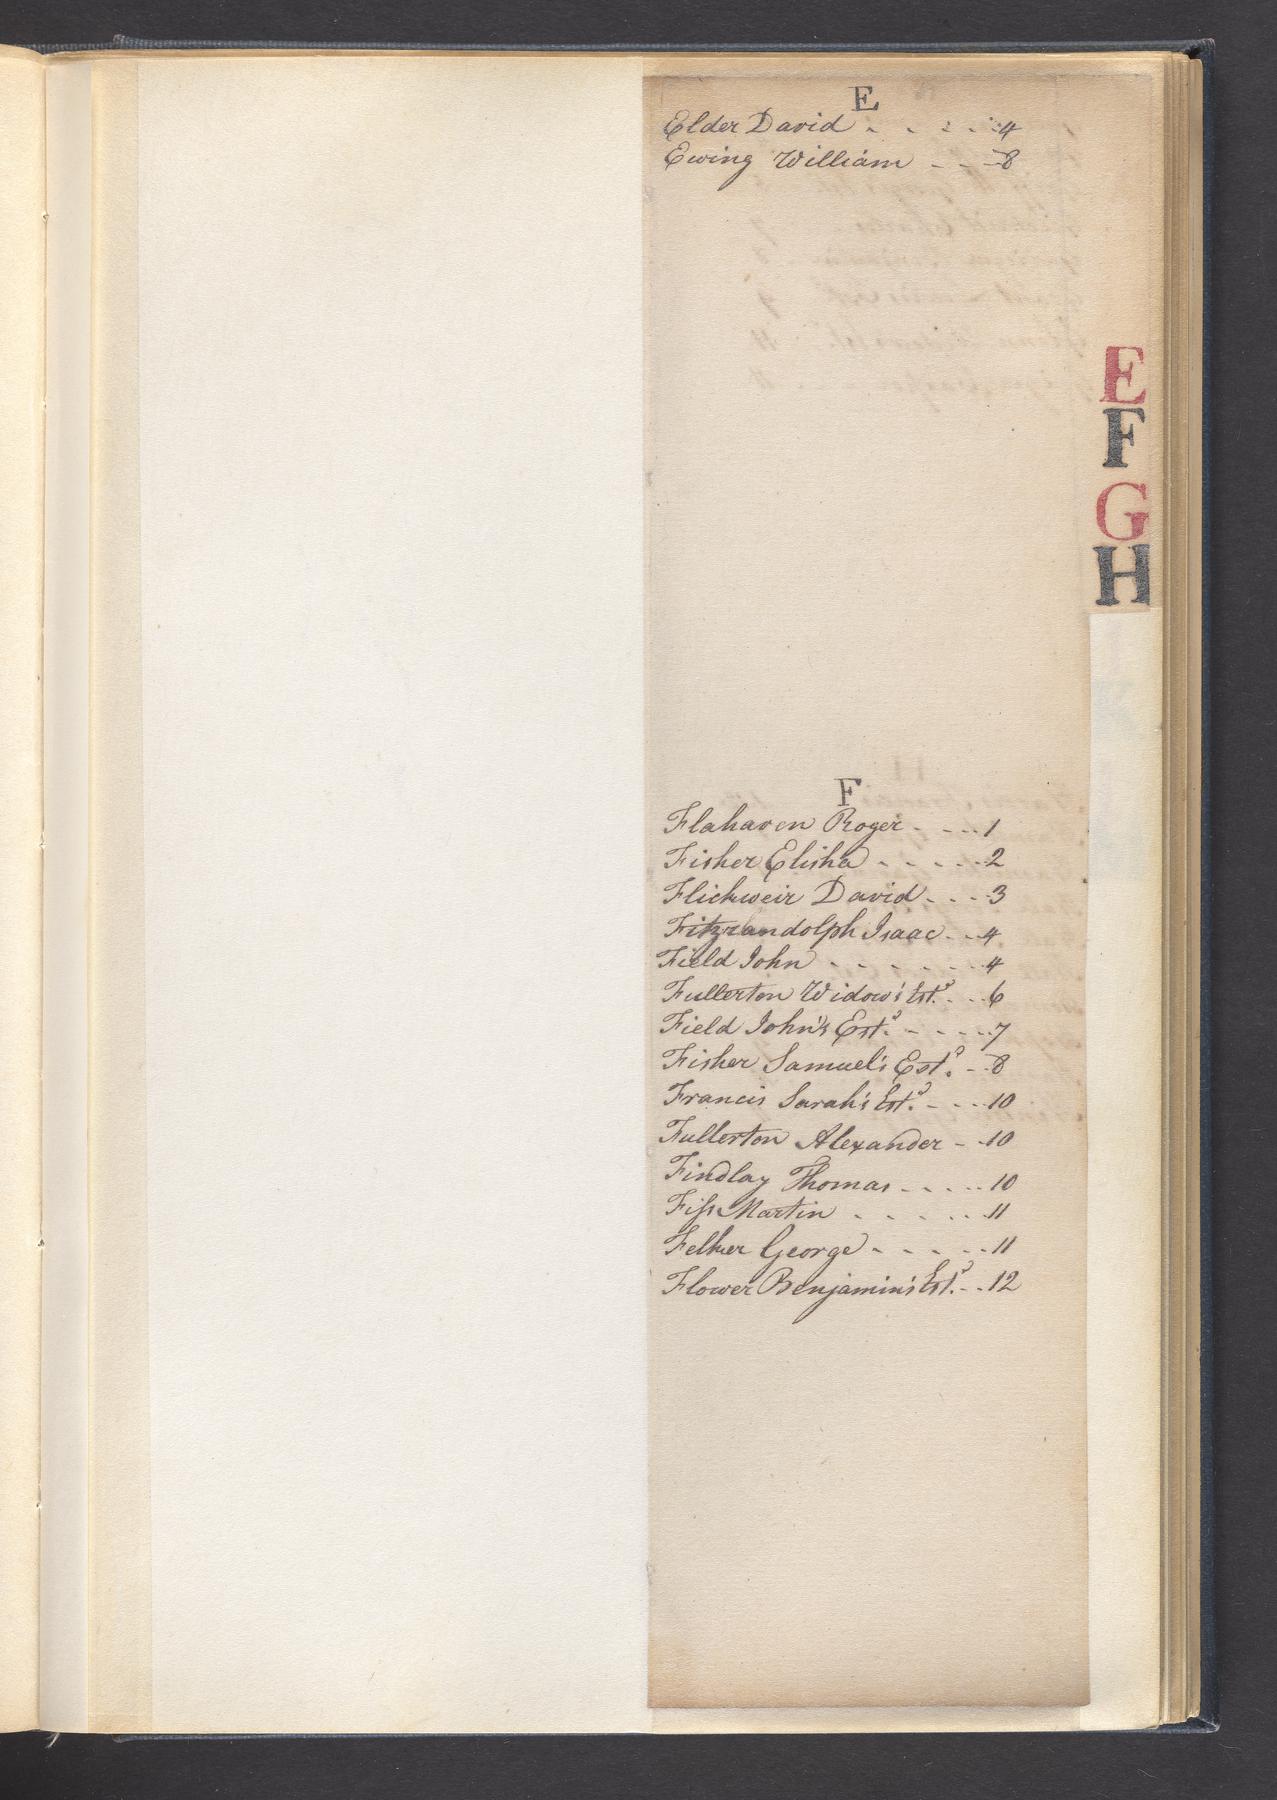 E
Elder David - - - - - 4
Ewing William - - - 8
E
F
G
H
F
Flahaven Roger - - - - 1
Fisher Elisha - - - - - 2
Flickweir David - - - - 3
Fitzrandolph Isaac - - - 4
Field John - - - - - - 4
Fullerton Widow's Est.ᵈ - - - 6
Field John's Est.ᵈ - - - - - 7
Fisher Samuel's Est.ᵈ - - 8
Francis Sarah's Est.ᵈ - - - - 10
Fullerton Alexander - - 10
Findlay Thomas - - - - - 10
Fiſs Martin - - - - - - 11
Felker George - - - - - 11
Flower Benjamin's Est.ᵈ - - 12